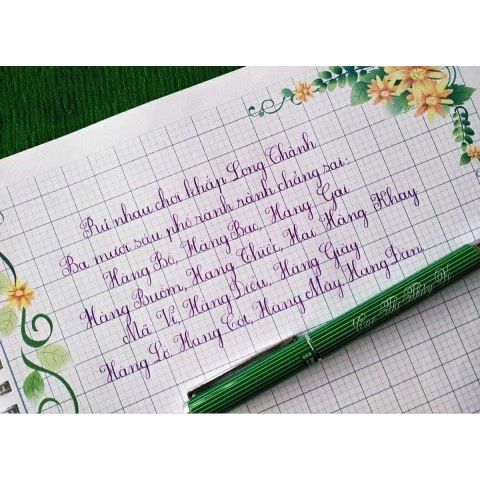 Rủ nhau chơi khắp Long Thành
Ba mươi sáu phố rành rành chẳng sai:
Hàng Bồ, Hàng Bạc, Hàng Gai
Hàng Buồm, Hàng Thiếc, Hài, Hàng Khay
Mã Vĩ, Hàng Điếu, Hàng Giày
Hàng Lờ, Hàng Cót, Hàng Mây, Hàng Đàn